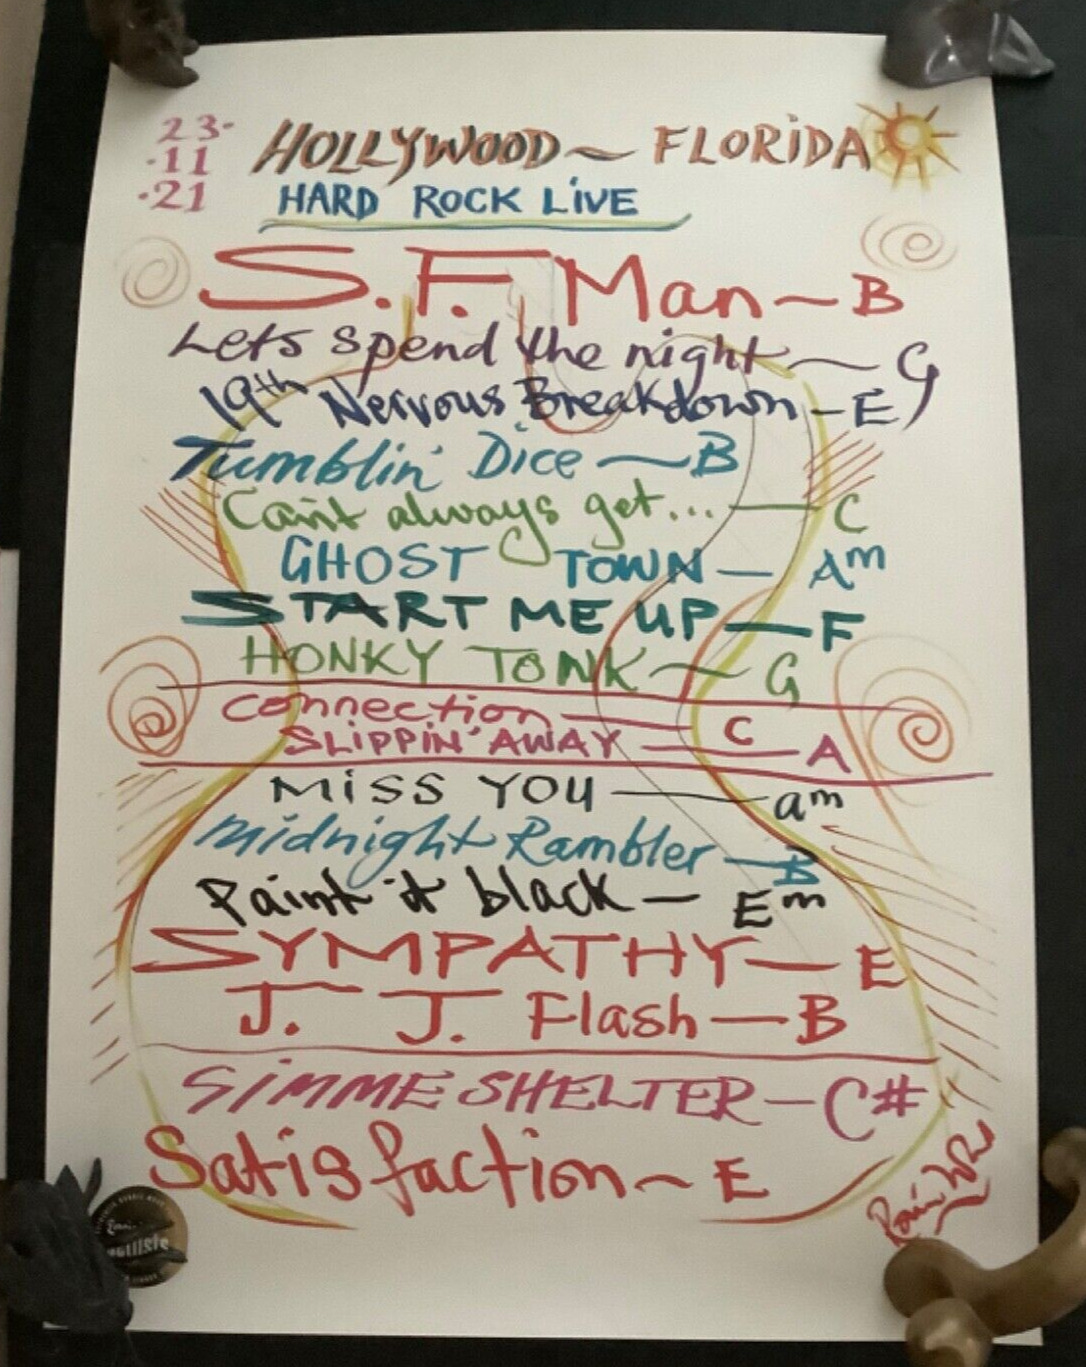 23.
.11
.21
HOLLYWOOD ~ FLORiDA
HARD ROCK LiVE
S.F. Man ~ B
Lets spend the night ~ G
19th Nervous Breakdown - E
Tumblin' Dice ~ B
Can't always get... — C
GHOST TOWN — Am
START ME UP — F
HONKY TONK ~ G
Connection — C
SLIPPIN' AWAY — A
MiSS YOU — am
Midnight Rambler — B
Paint it black — Em
SYMPATHY — E
J. J. Flash — B
GIMME SHELTER — C#
Satisfaction ~ E